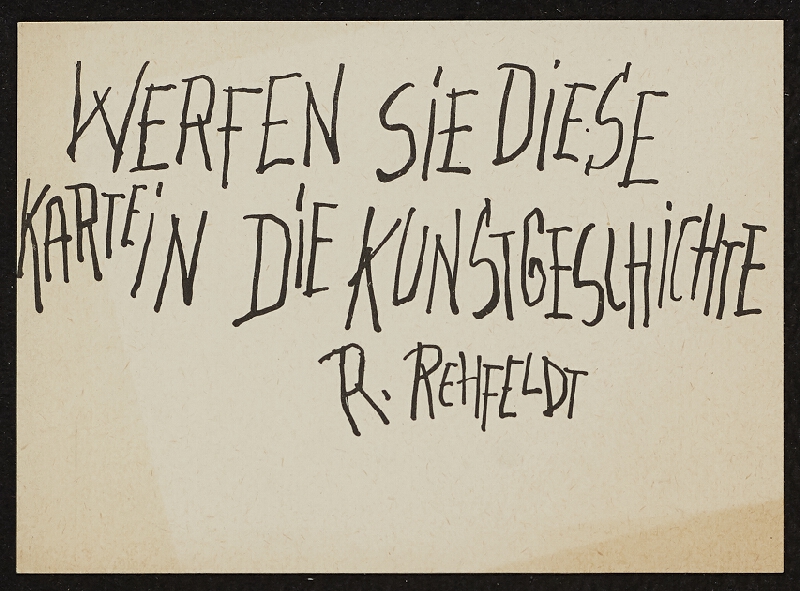 WERFEN SiE DiESE
KARTE iN DiE KUNSTGESCHiCHTE
R. REHFELDT